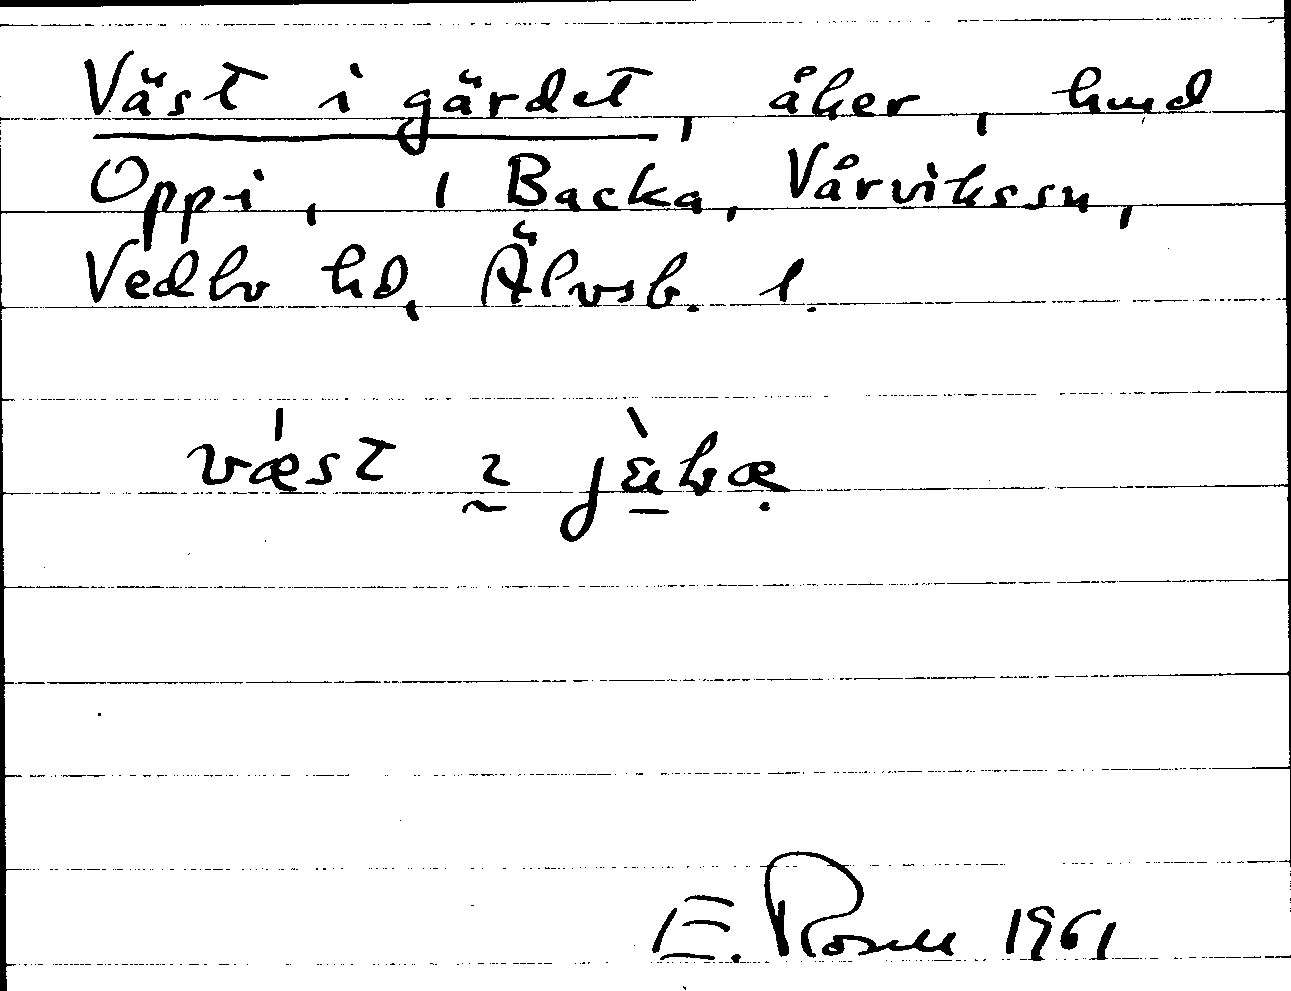 Väst i gärdet, åker, hmd
Oppi, 1 Backa, Vårvikssn,
Vedbo hd, Älvsb. l.
væst ı jὲbæ
E. Rosell 1961